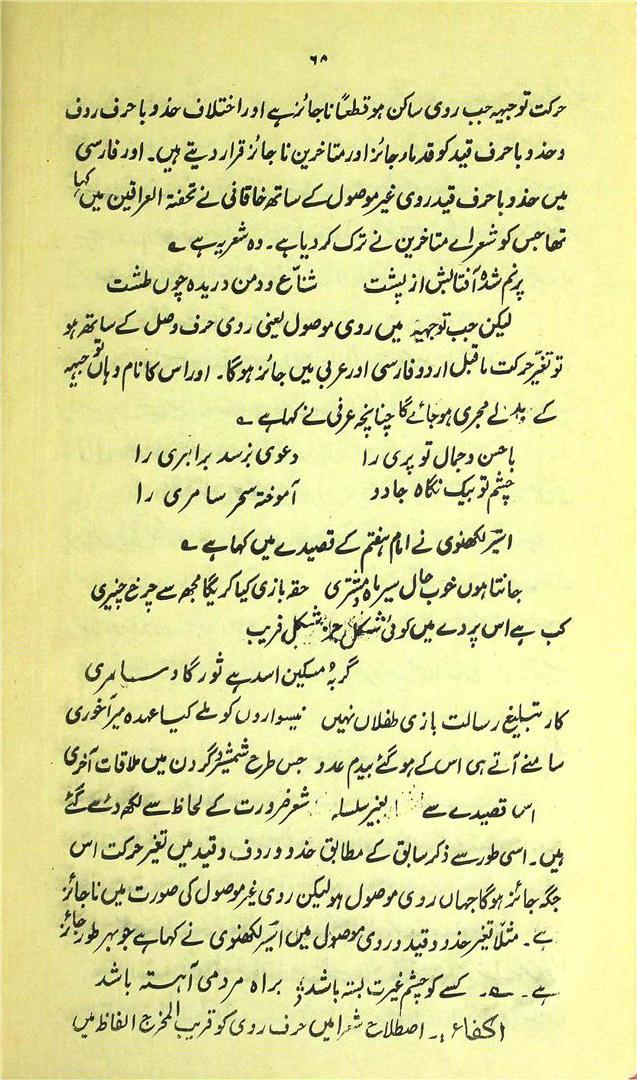 ۶۸
حرکت توجیہہ جب روی ساکن ہو قطعاً ناجائز ہے اور اختلاف حذو با حرف ردف
و حذو با حرف قید کو قدماء جائز اور متاخرین ناجائز قرار دیتے ہیں۔ اور فارسی
میں حذو با حرف قید روی غیر موصول کے ساتھ خاقانی نے تحفۃ العراقین میں کہا
تھا جس کو شعرائے متاخرین نے ترک کر دیا ہے۔ وہ شعر یہ ہے ؎
پر نم شدہ آفتابش از پشت شناع و دمن دریدہ چوں طشت
لیکن جب توجیہہ میں روی موصول یعنی روی حرف وصل کے ساتھ ہو
تو تغیّر حرکت ماقبل اردو فارسی اور عربی میں جائز ہوگا۔ اور اس کا نام وہاں توجیہہ
کے بدلے مجریٰ ہو جائے گا چنانچہ عرفی نے کہا ہے ؎
با حسن و جمال تو پری را دعوی نرسد برابری را
چشم تو بیک نگاہ جادو آموختہ سحر سامری را
اسیر لکھنوی نے امام ہفتم کے قصیدے میں کہا ہے ؎
جانتا ہوں خوب حال سیر ماہ و مشتری حقہ بازی کیا کریگا مجھ سے چرخ چنبری
کب ہے اس پردے میں کوئی شکل جز شکل فریب
گربۂ مسکین اسد ہے ثور گاو سامری
کار تبلیغ رسالت بازی طفلاں نہیں نیسواروں کو ملے کیا عہدہ میر آخوری
سامنے آتے ہی اس کے ہو گئے بیدم عدو جس طرح شمشیر و گردن میں ملاقات آخری
اس قصیدے سے بغیر سلسلہ شعر ضرورت کے لحاظ سے لکھ دئے گئے
ہیں۔ اسی طور سے ذکر سابق کے مطابق حذو و ردف و قید میں تغیر حرکت اس
جگہ جائز ہوگا جہاں روی موصول ہو لیکن روی غیر موصول کی صورت میں ناجائز
ہے۔ مثلاً تغیر حذو و قید و روی موصول میں اسیر لکھنوی نے کہا ہے جو بہر طور جائز
ہے۔ ؎۔ کسے کو چشم غیرت بستہ باشد براہ مردمی آہستہ باشد
اکفاء:۔ اصطلاح شعرا میں حرف روی کو قریب المخرج الفاظ میں